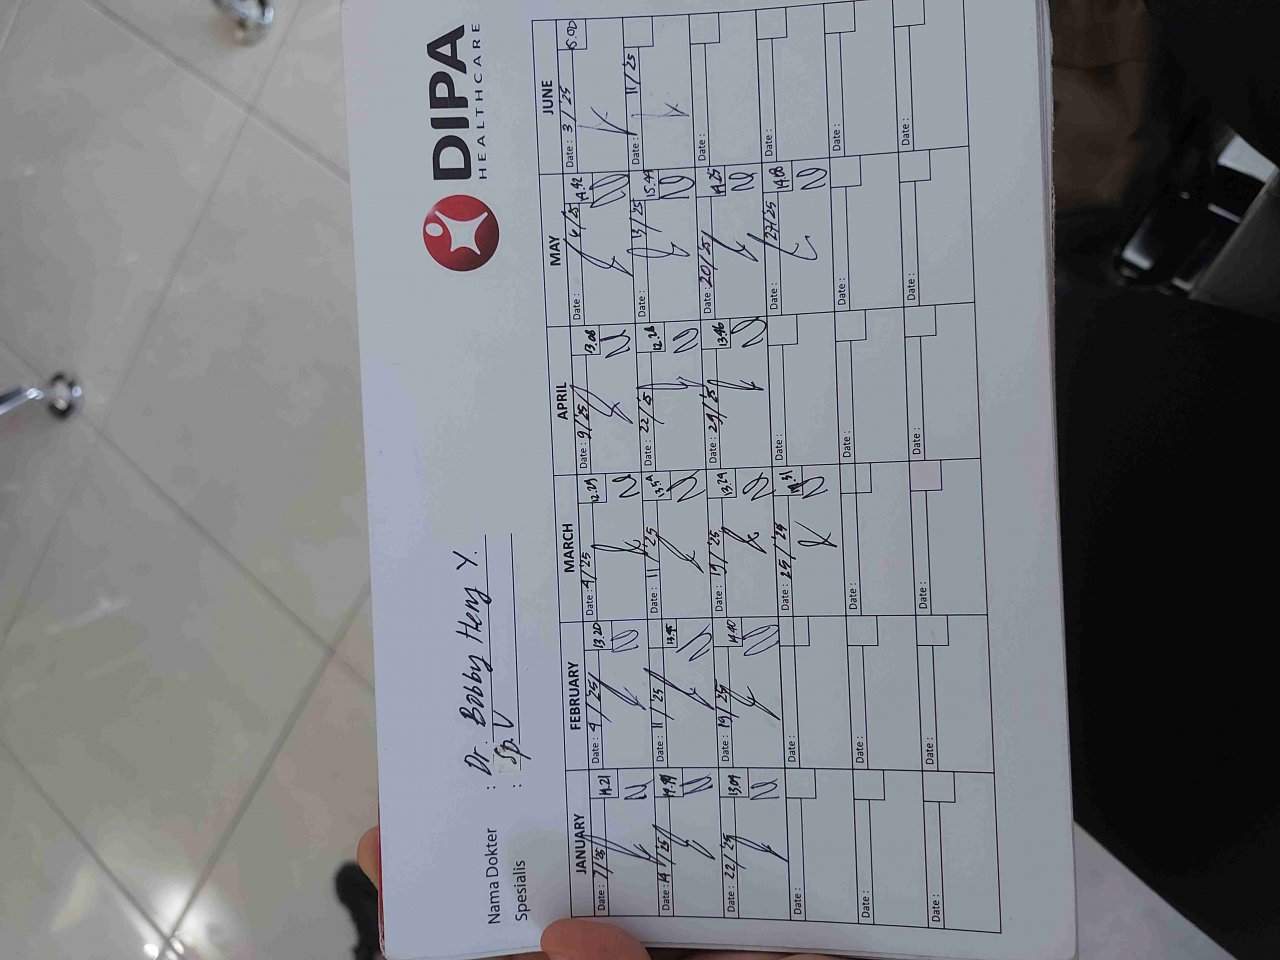 DIPA
HEALTHCARE
Nama Dokter : Dr. Bobby Henry Y.
Spesialis : Sp. U
JANUARY FEBRUARY MARCH APRIL MAY JUNE
Date: 7/'25 14.21 Date: 4/'25 13.20 Date: 4/25 12.29 Date: 9/'25 13.08 Date: 6/25 14.42 Date: 3/'25 15.00
Date: 14/'25 Date: 11/'25 13.45 Date: 11/'25 13.54 Date: 22/'25 12.28 Date: 13/25 15.44 Date: 11/'25
Date: 22/'25 13.09 Date: 19/'25 14.40 Date: 19/'25 13.29 Date: 29/'25 13.46 Date: 20/'25 14.25 Date:
Date: Date: Date: 25/'25 Date: Date: 27/'25 14.08 Date:
Date: Date: Date: Date: Date: Date:
Date: Date: Date: Date: Date: Date: